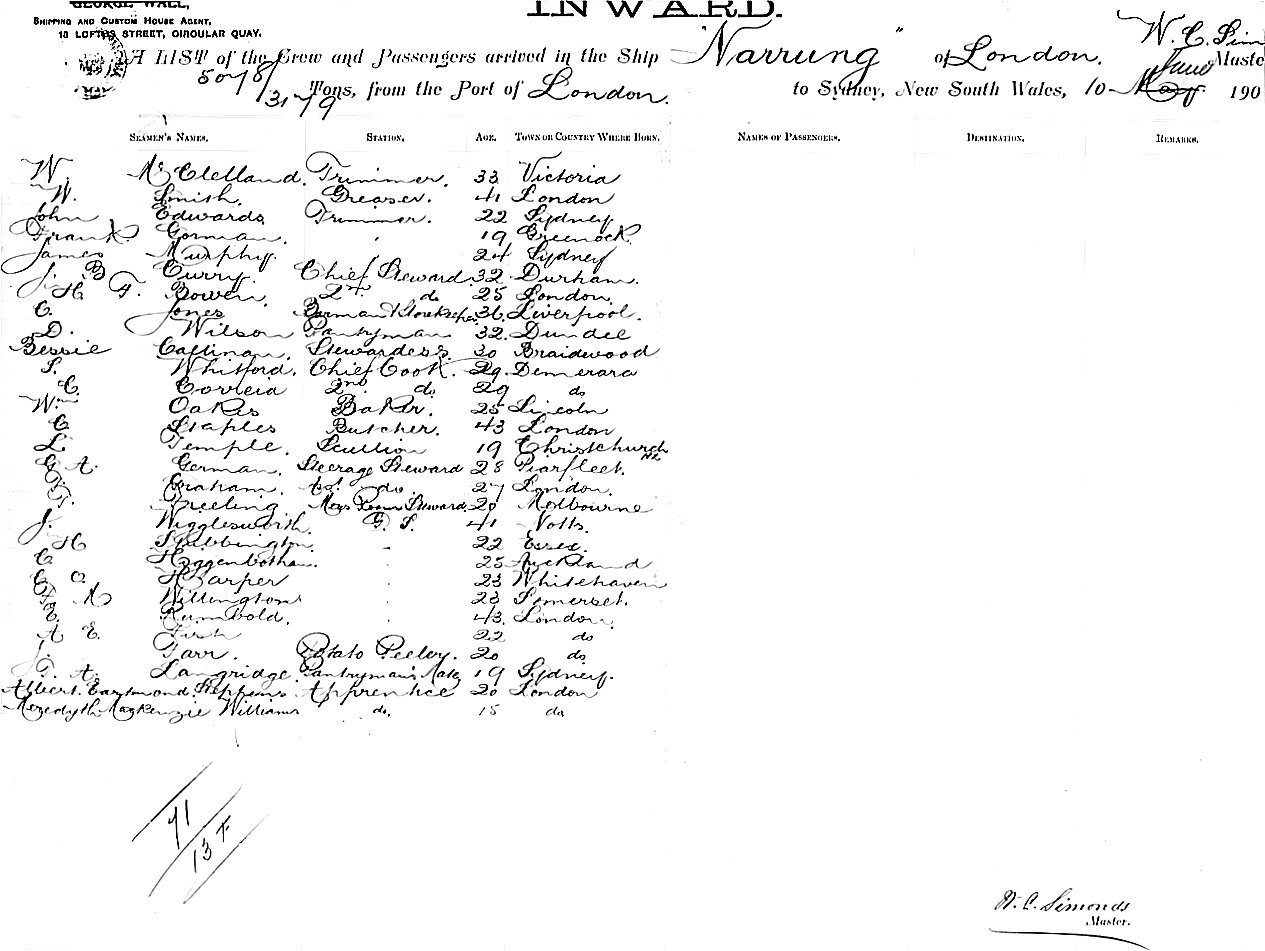 GEORGE WALL,
SHIPPING AND CUSTOM HOUSE AGENT,
10 LOFTUS STREET, CIRCULAR QUAY.
INWARD.
A LIST of the Crew and Passengers arrived in the Ship "Narrung" of London. W. C. Sim Maste
5078/3179 Tons, from the Port of London. to Sydney, New South Wales, 10 June May 190
SEAMEN'S NAMES. STATION. AGE. TOWN OR COUNTRY WHERE BORN. NAMES OF PASSENGERS. DESTINATION. REMARKS.
W. McClelland. Trimmer. 33 Victoria
W. Smith. Greaser. 41 London
John Edwards Trimmer. 22 Sydney
Frank Gorman. " 19 Greenock.
James Murphy. 24 Sydney
J. B Curry. Chief Steward 32 Durham.
H F. Bowen. 2nd. do 25 London.
C. Jones Barman & Storekeeper 36 Liverpool.
D. Wilson Pantryman 32 Dundee
Bessie Stewardess. 30 Braidwood
S. Whitford. Chief Cook. 29. Demerara
C. Correia 2nd. do. 29 do
Wm Oakes Baker. 25 Lincoln
C Staples Butcher. 43 London
L. Temple. Scullion 19 Christchurch NZ
G. A. German. Steerage Steward 28
Graham. do 27 London.
Mess Room Steward. 20 Melbourne
J. Wigglesworth. G. S. 41 Notts.
H Stubbington. 22 Essex.
C Higgenbotham. 25 Auckland
C A Harper 23 Whitehaven
M 23 Somerset.
Rumbold. 43. London.
A E. Firth 22 do
J. Potato Peeler. 20 do
A. Langridge. Pantryman's Mate 19 Sydney.
Albert Apprentice 20 London
MacKenzie Williams do. 15 do
71
13 F
W. C. Simonds
Master.